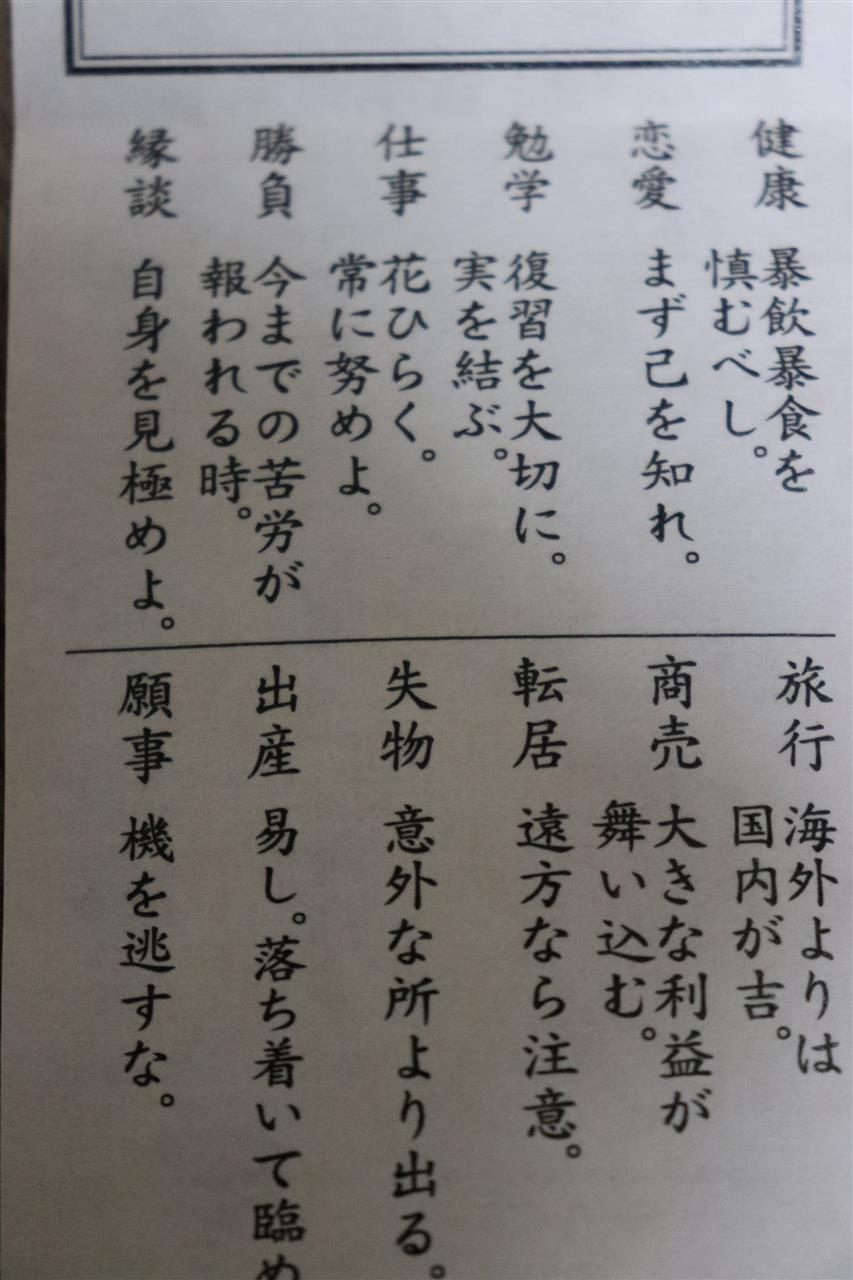 健康 暴飲暴食を
慎むべし。
恋愛 まず己を知れ。
勉学 復習を大切に。
実を結ぶ。
仕事 花ひらく。
常に努めよ。
勝負 今までの苦労が
報われる時。
縁談 自身を見極めよ。
旅行 海外よりは
国内が吉。
商売 大きな利益が
舞い込む。
転居 遠方なら注意。
失物 意外な所より出る。
出産 易し。落ち着いて臨め
願事 機を逃すな。